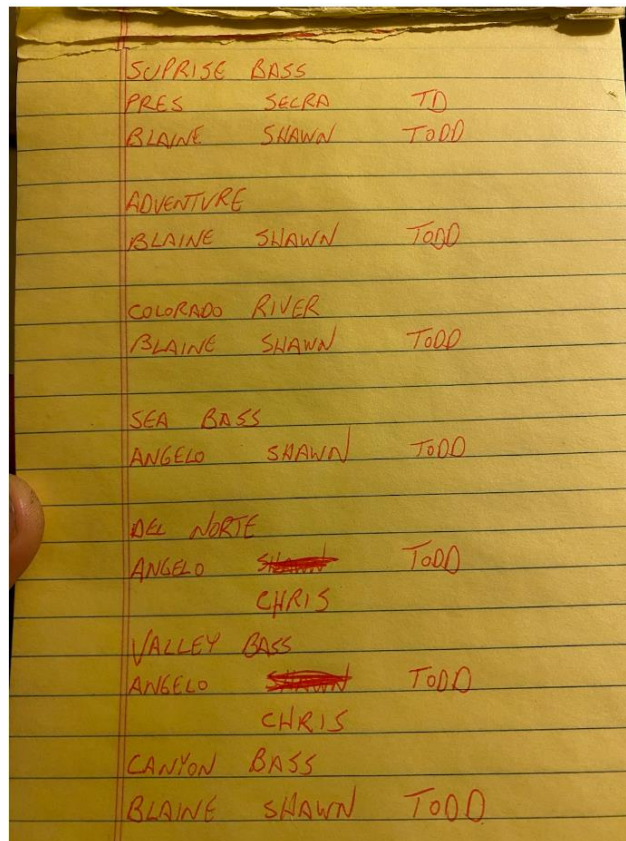 SUPRISE BASS
PRES SECRA TD
BLAINE SHAWN TODD
ADVENTURE
BLAINE SHAWN TODD
COLORADO RIVER
BLAINE SHAWN TODD
SEA BASS
ANGELO SHAWN TODD
DEL NORTE
ANGELO SHAWN TODD
CHRIS
VALLEY BASS
ANGELO SHAWN TODD
CHRIS
CANYON BASS
BLAINE SHAWN TODD